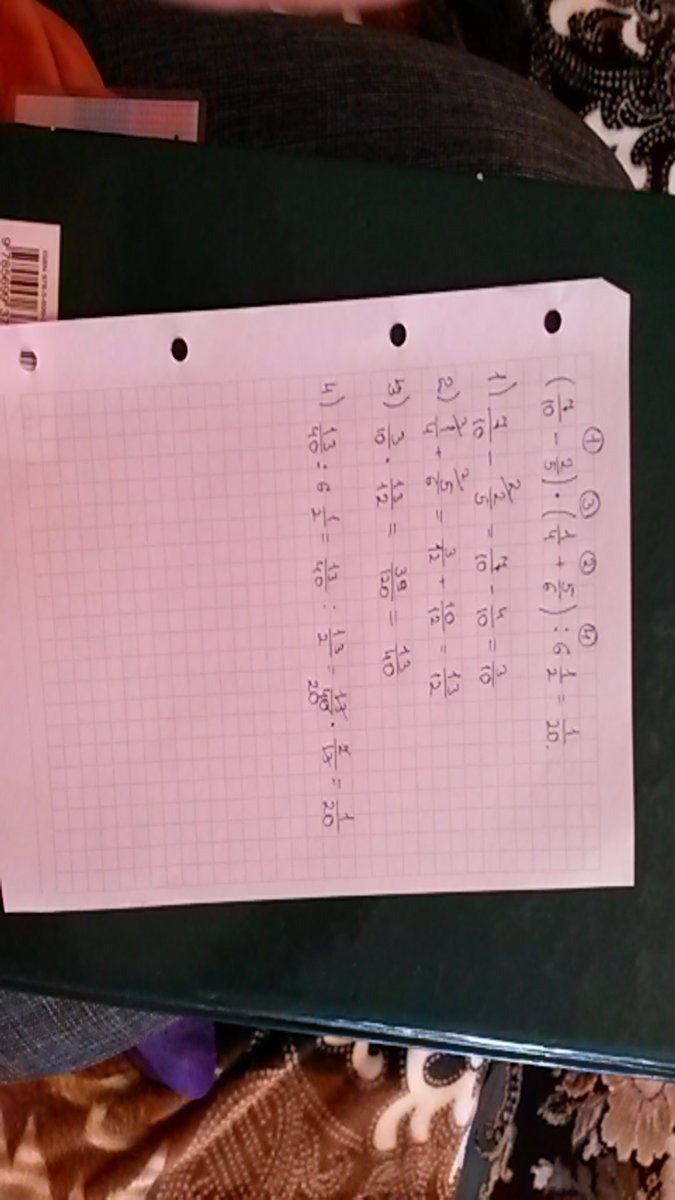 ① ③ ② ④
(7/10 - 2/5) · (1/4 + 5/6) : 6 1/2 = 1/20.
1) 7/10 - 2/5 = 7/10 - 4/10 = 3/10
2) 1/4 + 5/6 = 3/12 + 10/12 = 13/12
3) 3/10 · 13/12 = 39/120 = 13/40
4) 13/40 : 6 1/2 = 13/40 : 13/2 = 13/40 · 2/13 = 1/20
20